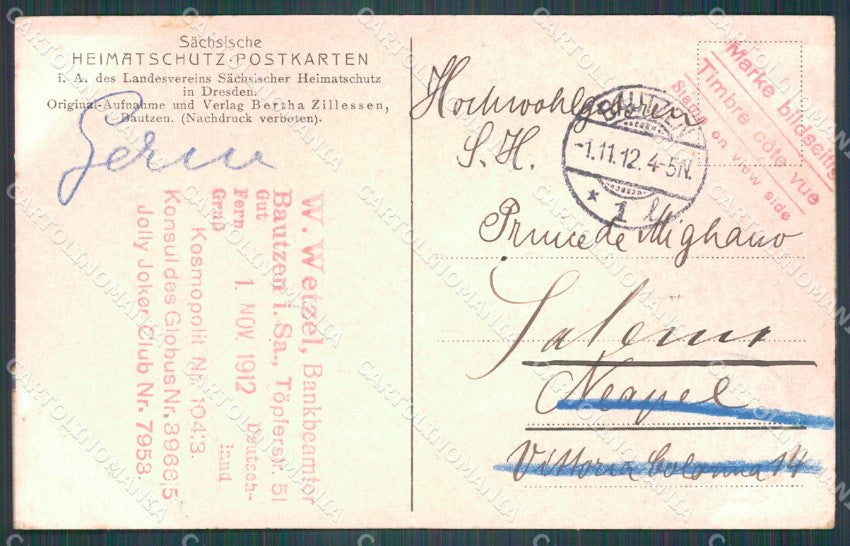 Sächsische
HEIMATSCHUTZ-POSTKARTEN
i. A. des Landesvereins Sächsischer Heimatschutz
in Dresden.
Original-Aufnahme und Verlag Bertha Zillessen,
Bautzen. (Nachdruck verboten).
W. Wetzel, Bankbeamter
Bautzen i. Sa., Töpferstr. 5I
Gut
Fern
Gruß
1 NOV 1912
Deutsch-
land
Kosmopolit Nr. 1043.
Konsul des Globus Nr. 3960,5
Jolly Joker Club Nr. 7953.
Marke bildseitig
Timbre côté vue
Stamp on view side
BAUTZEN
-1.11.12. 4-5N.
* 1
Hochwohlgeboren
S. H.
Prince de Mighano
Salerno
Neapel
Vittoria Colonna 14
CARTOLINOMANIA